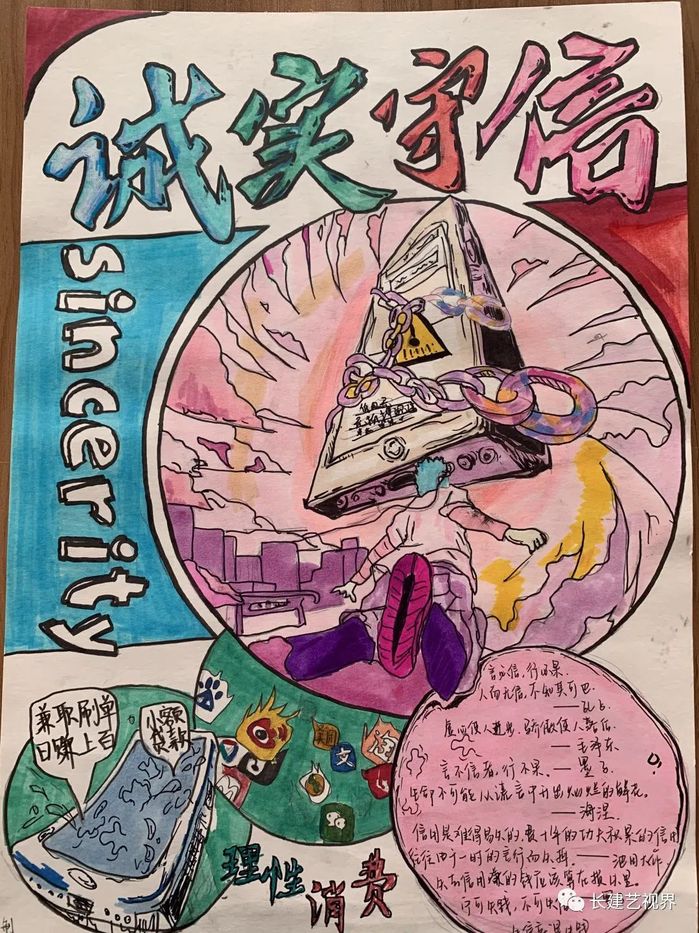 诚实守信
sincerity
兼职刷单
日赚上百
小额
贷款
理性
消费
文
淘
言必信，行必果。
人而无信，不知其可也。
——孔子
虚心使人进步，骄傲使人落后。
——毛泽东
言不信者，行不果。——墨子
生命不可能从谎言中开出灿烂的鲜花。
——海涅
信用是难得易失的，费十年的功夫积累的信用
往往由于一时的言行而失掉。——池田大作
失去信用
宁可失钱，不可失信
长建艺视界